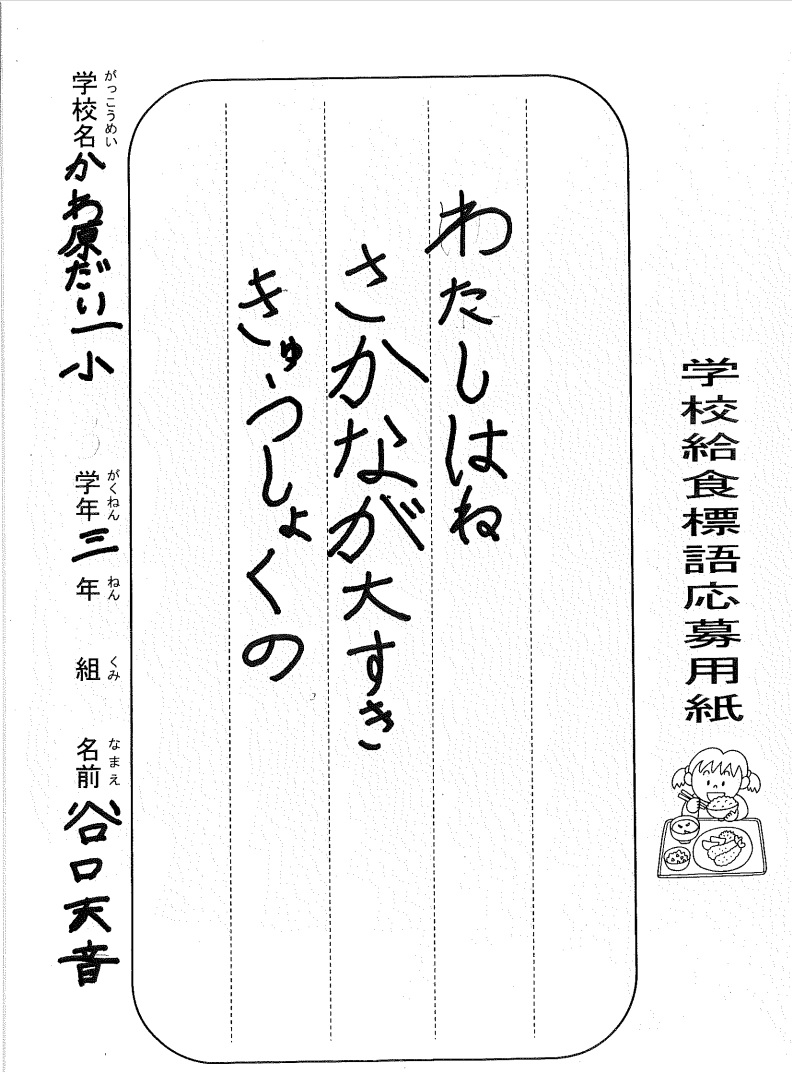 学校給食標語応募用紙
わたしはね
さかなが大すき
きゅうしょくの
学校名 かわ原だい一小 学年 三年 組 名前 谷口天音
がっこうめい がくねん ねん くみ なまえ